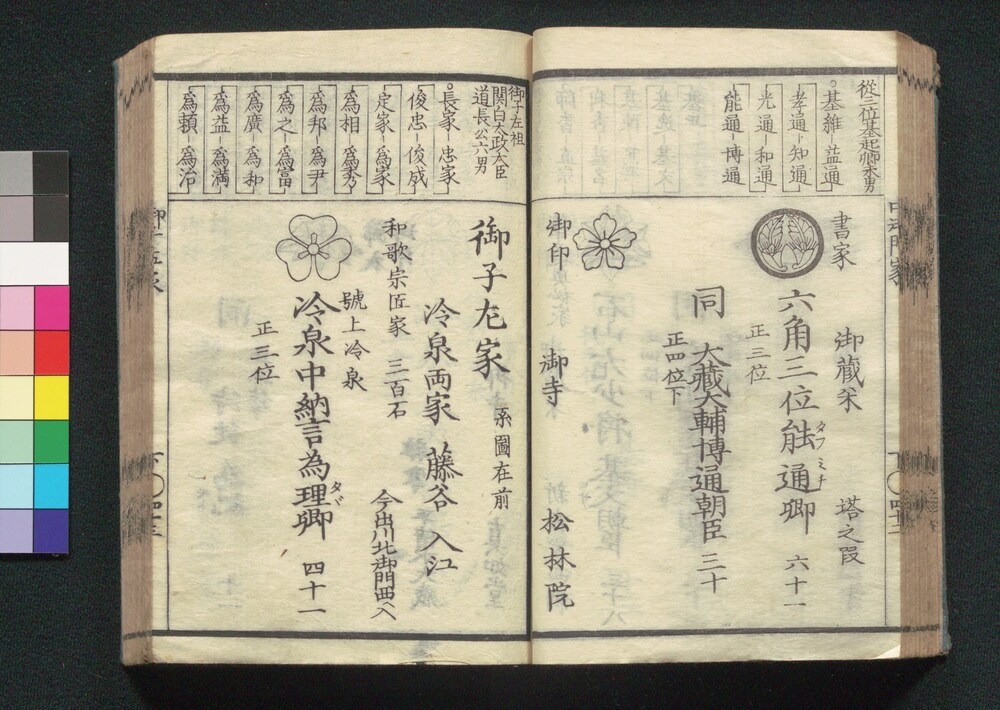 從三位基起卿末男
基維 益通
孝通 知通
光通 和通
能通 博通
書家 御蔵米 塔之段
六角三位能通卿 六十一
タフ ミチ
正三位
同 大藏大輔博通朝臣 三十
正四位下
御印 御寺 松林院
御子左祖
関白太政大臣
道長公六男
長家 忠家
俊忠 俊成
定家 為家
為相 為秀
為邦 為尹
為之 為富
為廣 為和
為益 為満
為頼 為治
御子左家 系圖在前
冷泉両家 藤谷 入江
和歌宗匠家 三百石 今出川北御門西へ入
號上冷泉
冷泉中納言為理卿 四十一
タヾ
正三位